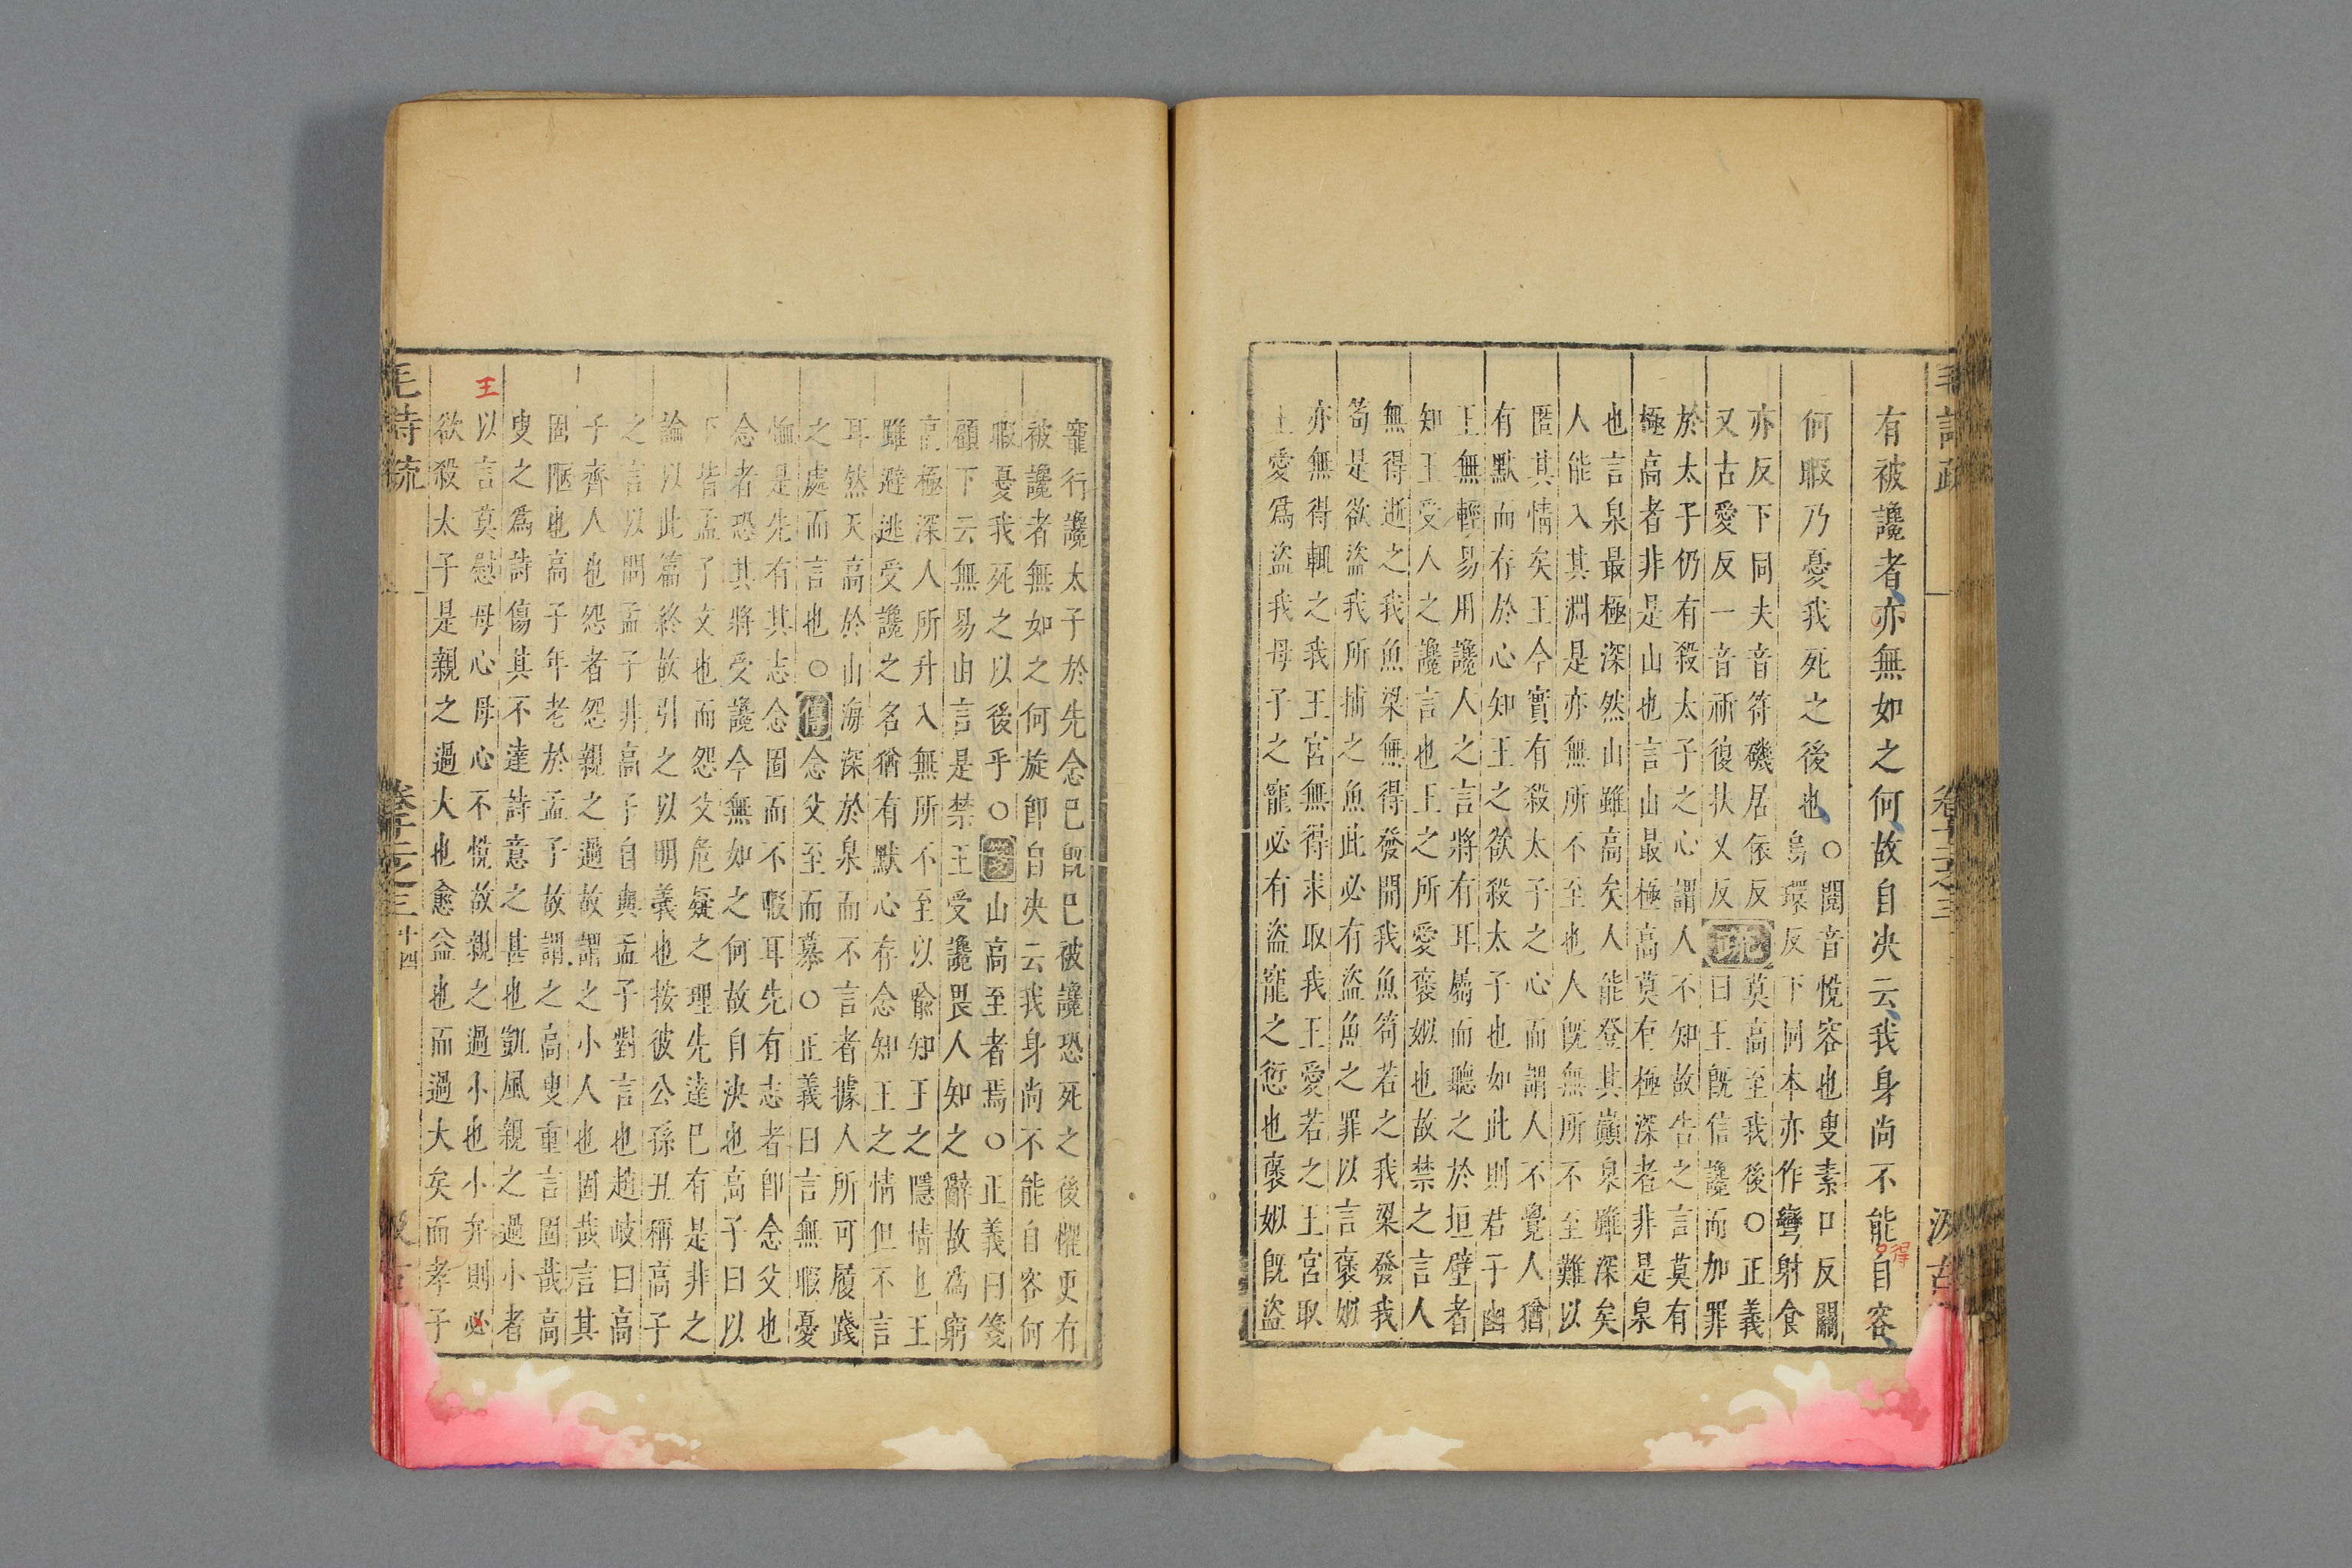 有被讒者亦無如之何故自决云我身尚不能自容
得
何暇乃憂我死之後也
○閱音悅容也叟素口反關
烏環反下同本亦作彎射食
亦反下同夫音符磯居依反
又古愛反一音祈復扶又反
疏
莫高至我後○正義
曰王旣信讒而加罪
於太子仍有殺太子之心謂人不知故告之言莫有
極高者非是山也言山最極高莫有極深者非是泉
也言泉最極深然山雖高矣人能登其巔泉雖深矣
人能入其淵是亦無所不至也人旣無所不至難以
匿其情矣王今實有殺太子之心而謂人不覺人猶
有默而存於心知王之欲殺太子也如此則君子幽
王無輕易用讒人之言將有耳屬而聽之於垣壁者
知王受人之讒言也王之所愛褒姒也故禁之言人
無得逝之我魚梁無得發開我魚笱若之我梁發我
笱是欲盜我所捕之魚此必有盜魚之罪以言褒姒
亦無得輒之我王宮無得求取我王愛若之王宮取
王愛爲盜我母子之寵必有盜寵之愆也褒姒旣盜
寵行讒太子於先念巳旣巳被讒恐死之後懼更有
被讒者無如之何旋卽自决云我身尚不能自容何
暇憂我死之以後乎○箋山高至者焉○正義曰箋
顧下云無易由言是禁王受讒畏人知之辭故爲窮
高極深人所升入無所不至以喻知王之隱情也王
雖避逃受讒之名猶有默心存念知王之情但不言
耳然天高於山海深於泉而不言者據人所可履踐
之處而言也○傳念父至而慕○正義曰言無暇憂
恤是先有其志念固而不暇耳先有志者卽念父也
念者恐其將受讒今無如之何故自决也高子曰以
下皆孟子文也而怨父危疑之理先達巳有是非之
論以此篇終故引之以明義也按彼公孫丑稱高子
之言以問孟子非高子自與孟子對言也趙岐曰高
子齊人也怨者怨親之過故謂之小人也固哉言其
固陋也高子年老於孟子故謂之高叟重言固哉高
叟之爲詩傷其不達詩意之甚也凱風親之過小者
王
以言莫慰母心母心不悅故親之過小也小弁則必
欲殺太子是親之過大也愈益也而過大矣而孝子
毛詩疏
卷十二之三
十四
汲古